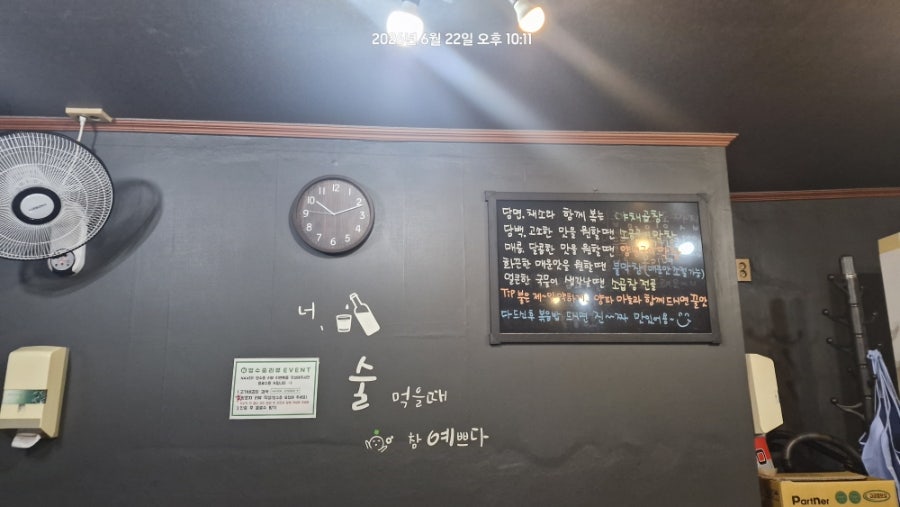 6월 22일 오후 10:11
12
11
1
10
2
9
3
8
4
7
5
6
당면, 채소와 함께 볶는 야채곱창
담백, 고소한 맛을 원할땐
매콤, 달콤한 맛을 원할땐
화끈한 매운맛을 원할땐 불막창 (매운맛 조절 가능)
얼큰한 국물이 생각날땐 소곱창 전골
TIP 불은 양파 마늘과 함께 드시면 꿀맛
다 드신 후 볶음밥 드시면 진~짜 맛있어용~
너,
술 먹을때
참 예쁘다
영수증리뷰 EVENT
Partner